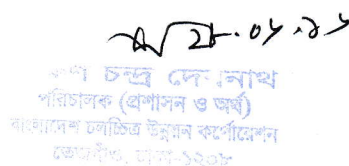 ২৮.০৮.২১
চন্দ্র দেবনাথ
পরিচালক (প্রশাসন ও অর্থ)
বাংলাদেশ চলচ্চিত্র উন্নয়ন কর্পোরেশন
তেজগাঁও, ঢাকা-১২০৮